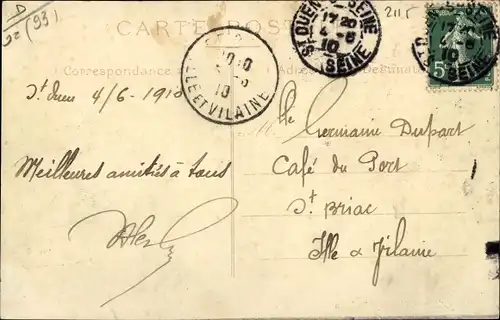 D
92 (93)
2115
CARTE POSTALE
Correspondance
Adresse du Destinataire
ST OUEN S SEINE
17 20
4 - 6
10
SEINE
10
ILLE ET VILAINE
St Ouen 4/6 - 1910
Meilleures amitiés à tous
Mlle Germaine Dupart
Café du Port
St Briac
Ille & Vilaine